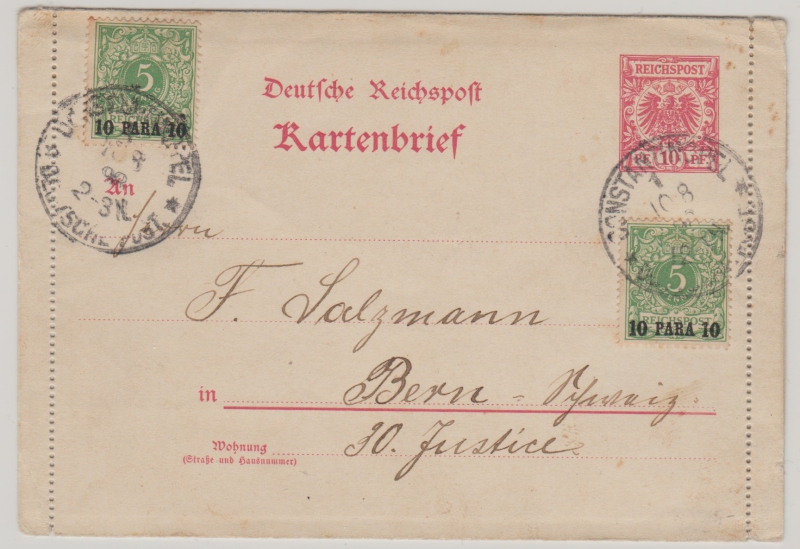 5
10 PARA 10
REICHSPOST
PF 10 PF
Deutſche Reichspoſt
Kartenbrief
CONSTANTINOPEL
10 8
2-3N.
An
Herrn
F. Salzmann
5
REICHSPOST
10 PARA 10
in Bern - Schweiz
Wohnung
(Straße und Hausnummer)
30. Justice